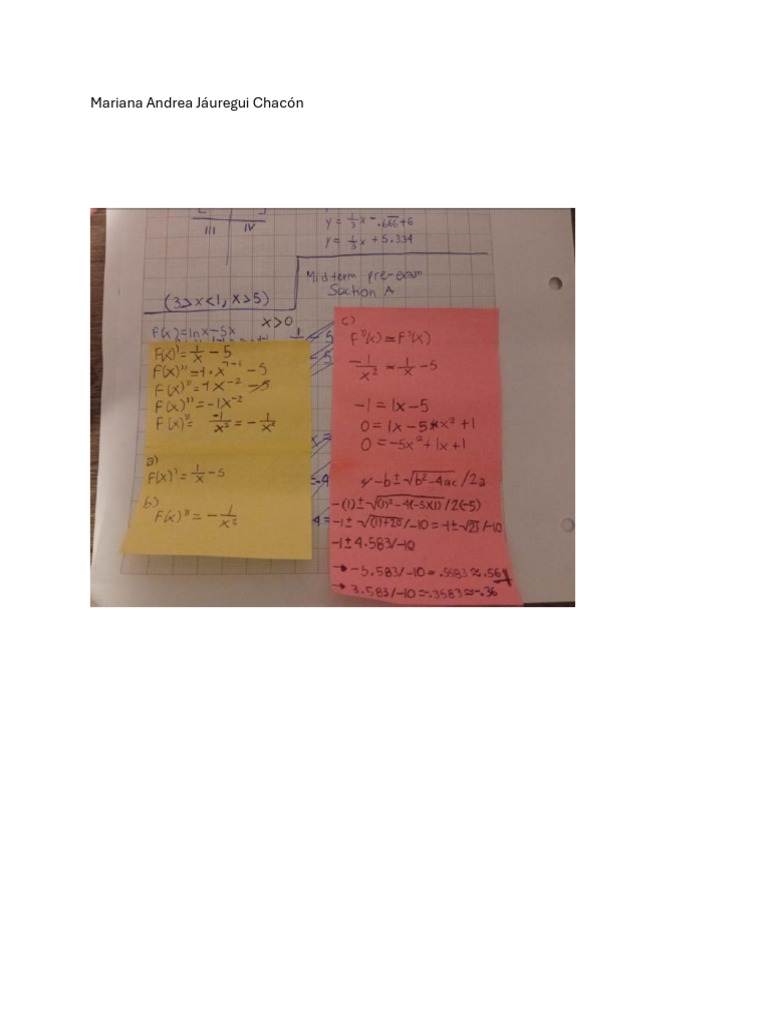 Mariana Andrea Jáuregui Chacón
III IV
y = 1/3 x - .666 + 6
y = 1/3 x + 5.334
Midterm pre-exam
Section A
(3>x<1, x>5)
x>0
F(x) = lnx - 5x
F(x)' = 1/x - 5
F(x)'' = 1·x^-1-1 - 5
F(x)'' = 1x^-2 - 5
F(x)'' = -1x^-2
F(x)'' = -1/x² = -1/x²
a)
F(x)' = 1/x - 5
b)
F(x)'' = -1/x²
c)
F''(x) = F'(x)
-1/x² = 1/x - 5
-1 = 1x - 5
0 = 1x - 5x² + 1
0 = -5x² + 1x + 1
-b ± √b² - 4ac / 2a
-(1) ± √(1)² - 4(-5)(1) / 2(-5)
-1 ± √(1) + 20 / -10 = -1 ± √21 / -10
-1 ± 4.583 / -10
→ -5.583 / -10 = .5583 ≈ .56
→ 3.583 / -10 = -.3583 ≈ -.36